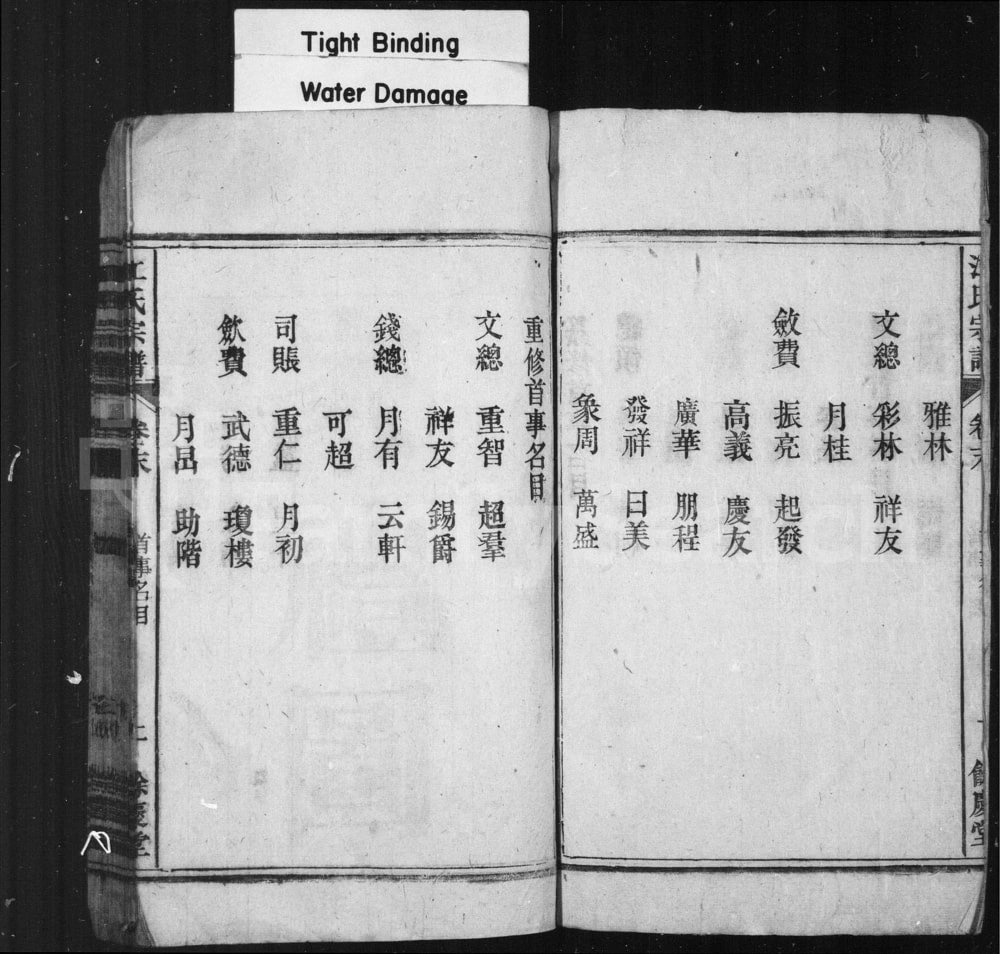 Tight Binding
Water Damage
江氏宗譜
雅林
文總 彩林 祥友
月桂
斂費 振亮 起發
高義 慶友
廣華 朋程
發祥 日美
象周 萬盛
重修首事名目
文總 重智 超羣
祥友 錫爵
錢總 月有 云軒
可超
司賬 重仁 月初
斂費 武德 瓊樓
月品 助階
江氏宗譜 卷末 首事名目 二 餘慶堂